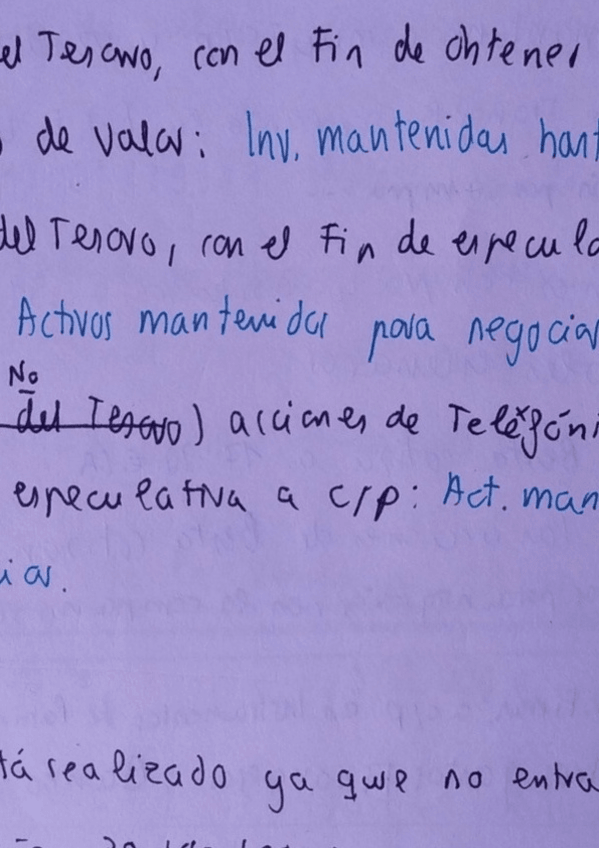 el Tesoro, con el Fin de obtener
de valor: Inv. mantenidas hast
del Tesoro, con el Fin de especula
Activos mantenidos para negociar
No
del Tesoro) acciones de Telefóni
especulativa a c/p: Act. man
iar.
tá realizado ya que no entra